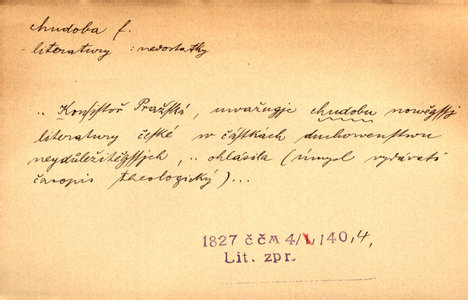 chudoba f.
literatury : nedostatky
„ Konsistoř Pražská, uwažugje chudobu nowěgssj
literatury české w částkách duchowenstwu
neydůležitěgssjch, .. ohlásila (úmysl vydávati
časopis theologický)...
1827 ČČM 4/I,140,4,
Lit. zpr.